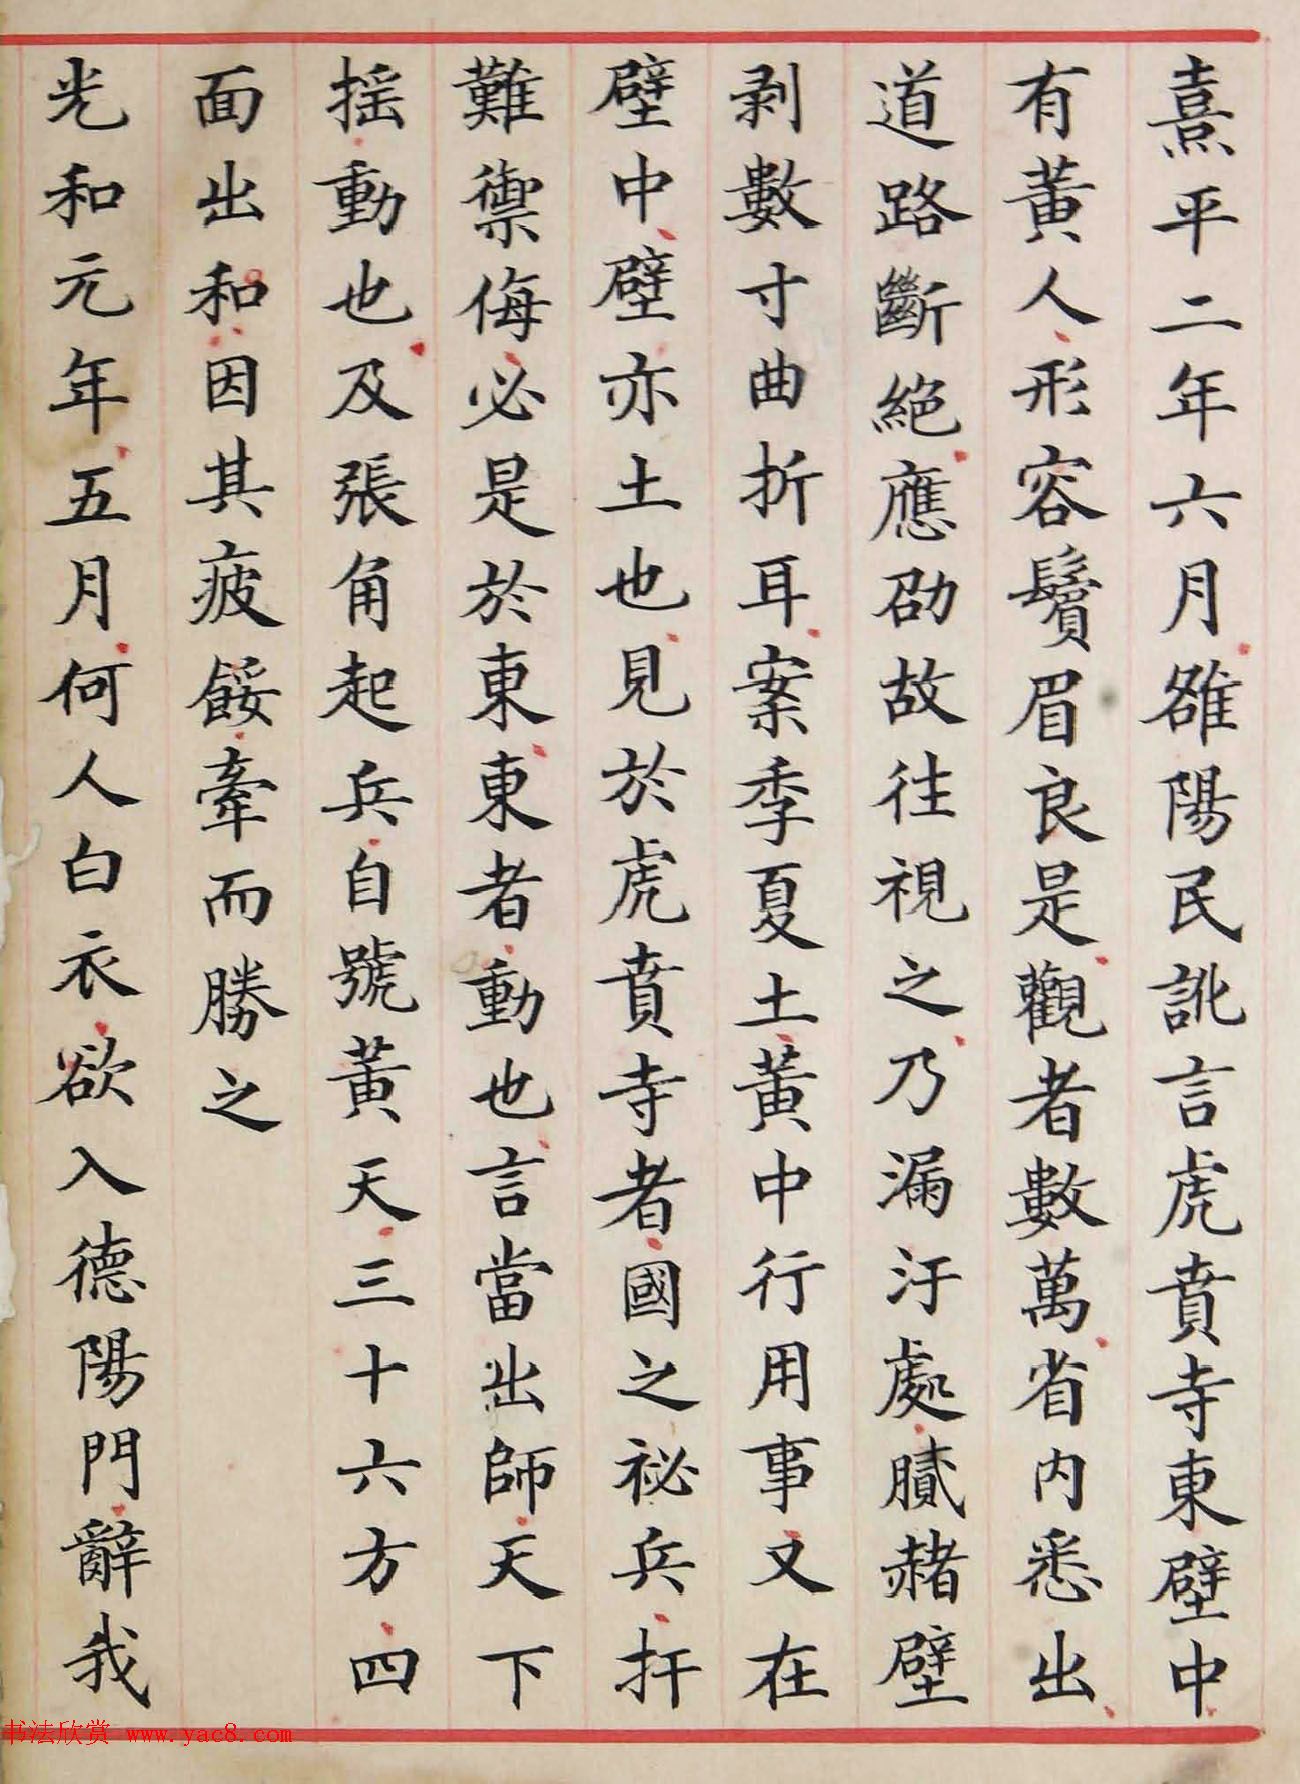 熹平二年六月雒陽民訛言虎賁寺東壁中
有黃人形容鬢眉良是觀者數萬省內悉出
道路斷絕應劭故往視之乃漏汙處膩赭壁
剥數寸曲折耳案季夏土黃中行用事又在
壁中壁亦土也見於虎賁寺者國之祕兵扞
難禦侮必是於東東者動也言當出師天下
搖動也及張角起兵自號黃天三十六方四
面出和因其疲餒牽而勝之
光和元年五月何人白衣欲入德陽門辭我
书法欣赏 www.yac8.com